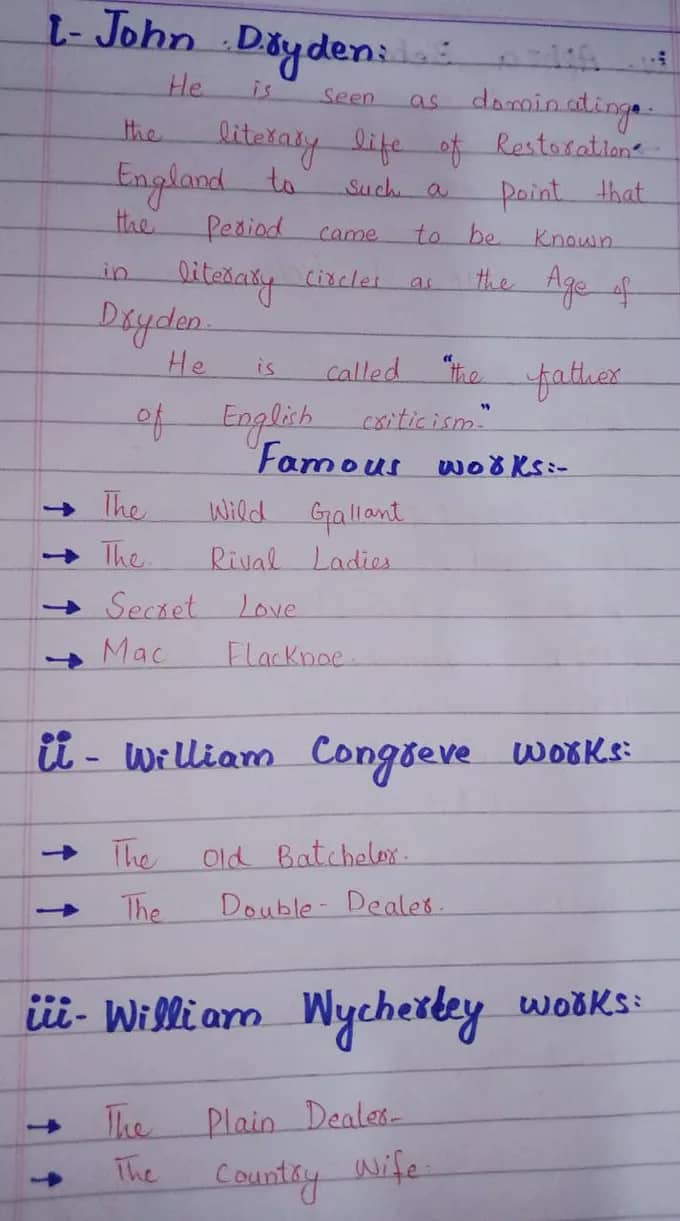 i- John Dryden:
He is seen as dominating
the literary life of Restoration
England to such a point that
the Period came to be known
in literary circles as the Age of
Dryden.
He is called "the father
of English criticism."
Famous works:-
→ The Wild Gallant
→ The Rival Ladies
→ Secret Love
→ Mac Flacknoe.
ii- William Congreve works:
→ The Old Batchelor.
→ The Double-Dealer.
iii- William Wycherley works:
→ The Plain Dealer-
→ The Country Wife.